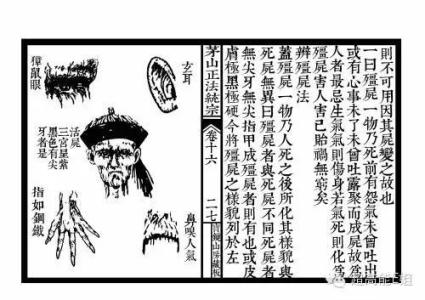 則不可用因其屍變之故也
一曰殭屍一物乃死前有怨氣未曾吐出
或有心事未了未曾吐露聚而成屍故為
人者最忌生氣氣則傷身若氣死則化為
殭屍害人害己貽禍無窮矣
辨殭屍法
蓋殭屍一物乃人死之後所化其樣貌與
死屍無異曰殭屍者與死屍不同死屍者
無尖牙無尖指甲成殭屍者則有也或皮
膚極黑極硬今將殭屍之樣貌列於左
茅山正法統宗
卷十六
二七
玄耳
獐鼠眼
活屍
三宮呈紫
黑色有尖
牙者是
鼻嗅人氣
指如鋼鐵